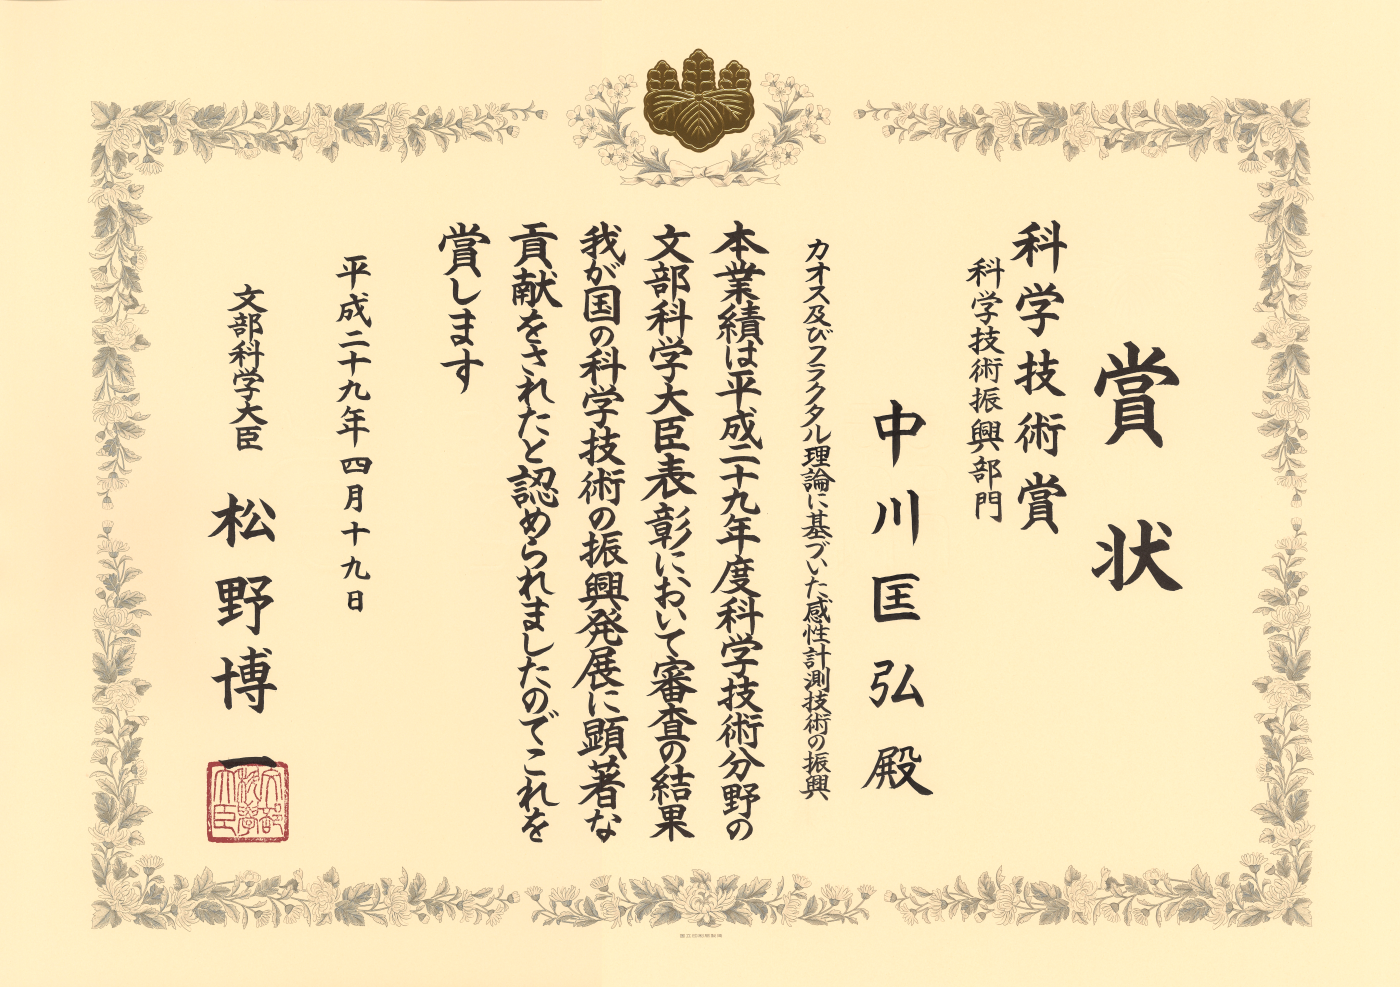 賞状
科学技術賞
科学技術振興部門
中川匡弘殿
カオス及びフラクタル理論に基づいた感性計測技術の振興
本業績は平成二十九年度科学技術分野の
文部科学大臣表彰において審査の結果
我が国の科学技術の振興発展に顕著な
貢献をされたと認められましたのでこれを
賞します
平成二十九年四月十九日
文部科学大臣 松野博一
文部科學大臣
国立印刷局製造